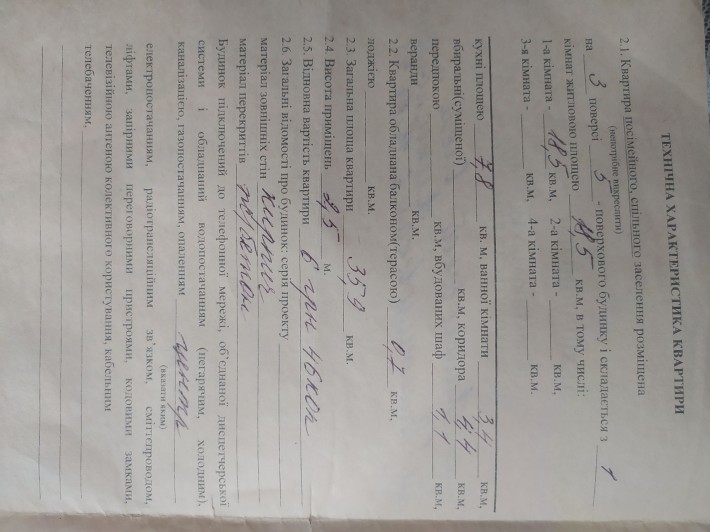 ТЕХНІЧНА ХАРАКТЕРИСТИКА КВАРТИРИ
2.1. Квартира посімейного, спільного заселення розміщена
(непотрібне викреслити)
на 3 поверсі 5 - поверхового будинку і складається з 1
кімнат житловою площею 18,5 кв.м, в тому числі:
1-а кімната - 18,5 кв.м, 2-а кімната - кв.м,
3-я кімната - кв.м, 4-а кімната - кв.м.
кухні площею 7,8 кв. м, ванної кімнати 3,4 кв.м,
вбиральні(суміщеної) кв.м, коридора 4,4 кв.м,
передпокою кв.м, вбудованих шаф 1,1 кв.м,
веранди кв.м.
2.2. Квартира обладнана балконом(терасою) 0,7 кв.м,
лоджією кв.м.
2.3. Загальна площа квартири 35,9 кв.м.
2.4. Висота приміщень 2,5 м.
2.5. Відновна вартість квартири 6 грн 46 коп
2.6. Загальні відомості про будинок: серія проекту
матеріал зовнішніх стін кирпич
матеріал перекриттів
Будинок підключений до телефонної мережі, об'єднаної диспетчерської
системи і обладнаний водопостачанням (негарячим, холодним),
каналізацією, газопостачанням, опаленням центр
(вказати яким)
електропостачанням, радіотрансляційним зв'язком, сміттєпроводом,
ліфтами, запірними переговорними пристроями, кодовими замками,
телевізійною антеною колективного користування, кабельним
телебаченням,